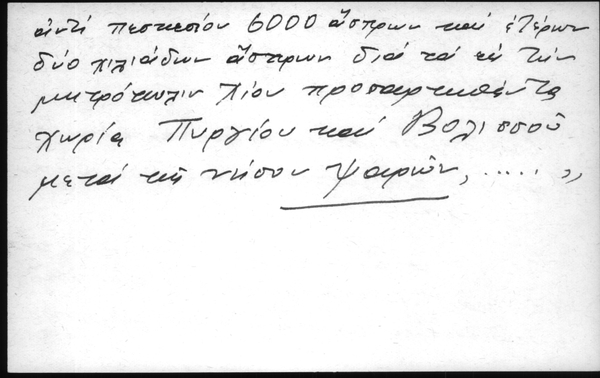 ἀντί πεσκεσίου 6000 ἄσπρων καί ἑτέρων
δύο χιλιάδων ἄσπρων διά τά εἰς τήν
μητρόπολιν Χίου προσαρτηθέντα
χωρία Πυργίου καί Βολισσοῦ
μετά τῆς νήσου Ψαρῶν, ..... „